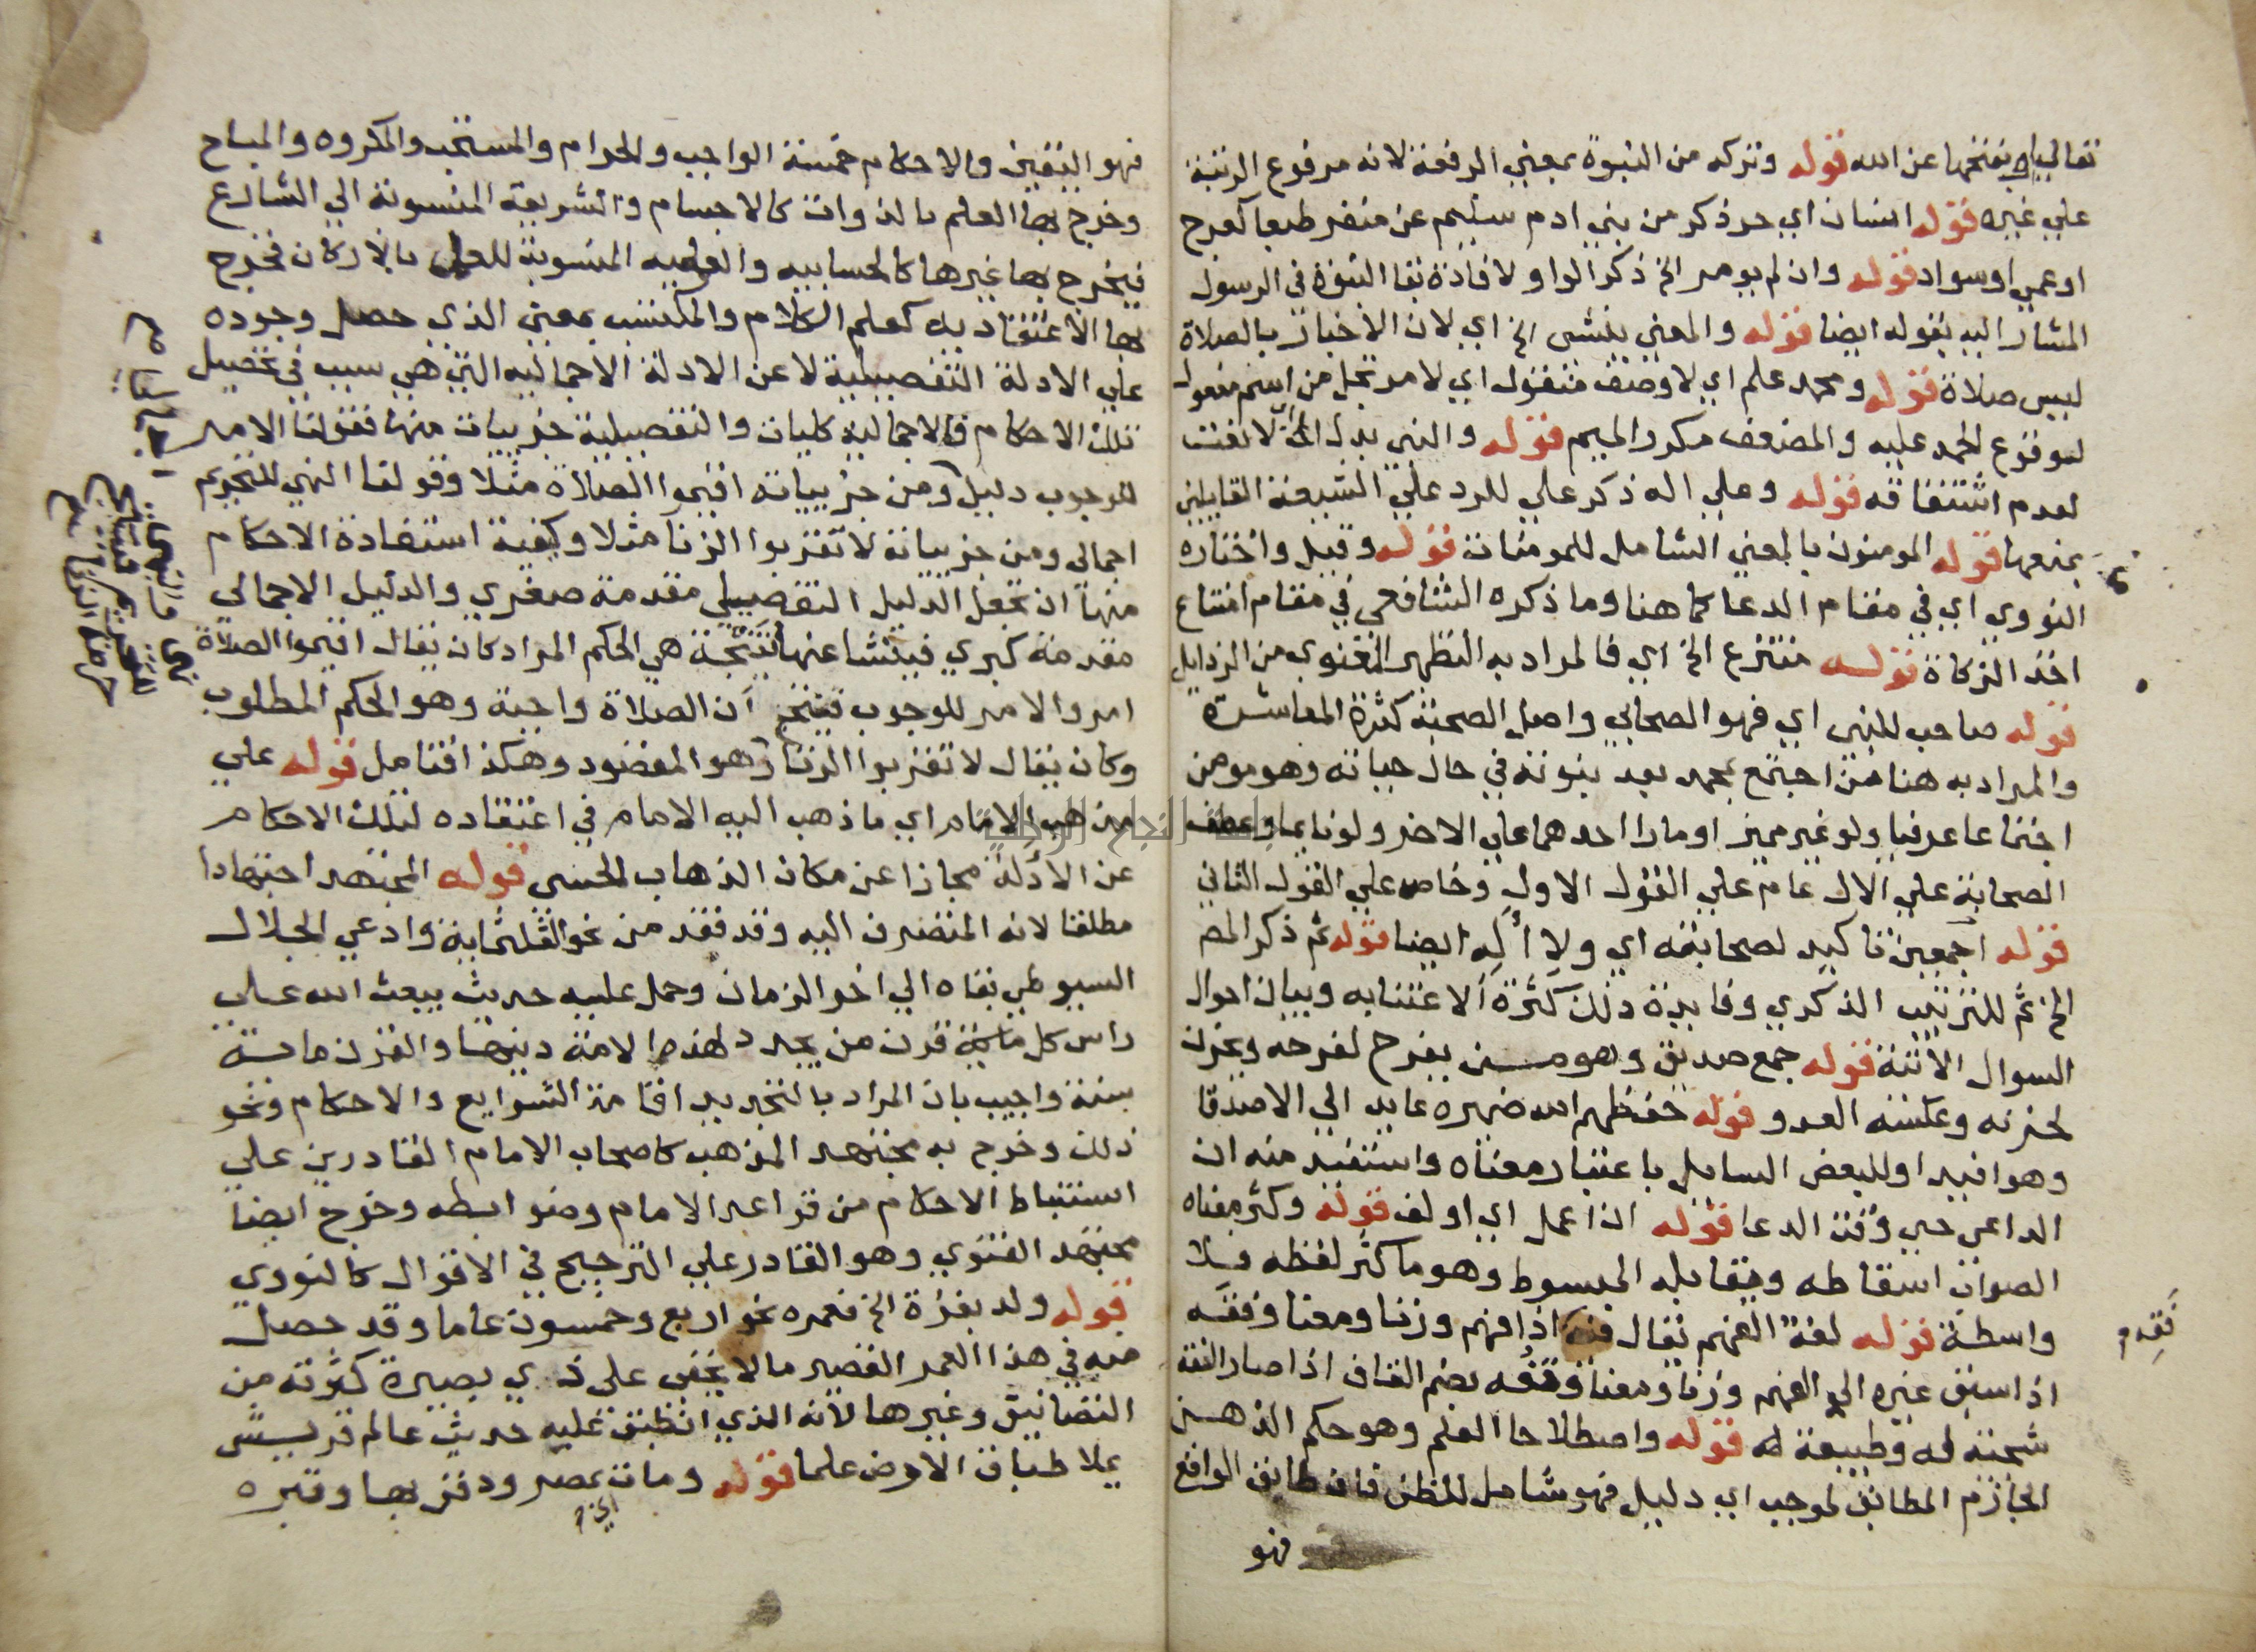 تعالى اي بفتحها عن الله قوله وتركه من النبوة بمعني الرفعة لانه مرفوع الرتبة
علي غيره قوله انسان اي حر ذكر من بني ادم سليم عن منفر طبعا كعرج
او عمي او سواد قوله وان لم يومر الخ ذكر الواو لافادة بقا النبوة في الرسول
المشار اليه بقوله ايضا قوله والمعني ينشي الخ اي لان الاخبار بالصلاة
ليس صلاة قوله ومحمد علم اي لا وصف منقول اي لا مرتجل من اسم مفعول
لوقوع الحمد عليه والمضعف مكرر الميم قوله والنبي بدل الخ لا نعت
لعدم اشتقاقه قوله وعلي اله ذكر علي للرد علي الشيعة القايلين
بمنعها قوله المومنون بالمعني الشامل للمومنات قوله وقيل واختاره
النووي اي في مقام الدعا كما هنا وما ذكره الشافعي في مقام امتناع
اخذ الزكاة قوله منتزع الخ اي فالمراد به التطهر المعنوي من الرذايل
قوله صاحب للنبي اي فهو الصحابي واصل الصحبة كثرة المعاشرة
والمراد به هنا من اجتمع بمحمد بعد نبوته في حال حياته وهو مومن
اجتماعا عرفيا ولو غير مميز او مارا احدهما علي الاخر ولو نايما وعطف
الصحابة علي الال عام علي القول الاول وخاص علي القول الثاني
قوله اجمعين تاكيد لصحابته اي ولاله ايضا قوله ثم ذكر المص
الخ ثم للترتيب الذكري وفايدة ذلك كثرة الاعتنا به وبيان احوال
السوال الاتية قوله جمع صديق وهو من يفرح لفرحه ويحزن
لحزنه وعكسه العدو قوله حفظهم الله ضميره عايد الي الاصدقا
وهو افيد او للبعض السايل باعتبار معناه واستفيد منه ان
الداعي حي وقت الدعا قوله ان اعمل اي اولف قوله وكثر معناه
الصواب اسقاطه ومقابله المبسوط وهو ما كثر لفظه فلا
واسطة قوله لغة الفهم يقال فقه اذا فهم وزنا ومعنا وفقه
اذا سبق غيره الي الفهم وزنا ومعنا وفقه بضم القاف اذا صار الفقه
سجية له وطبيعة له قوله واصطلاحا العلم وهو حكم الذهن
الجازم المطابق لموجب اي دليل فهو شامل للظن فان طابق الواقع
فهو
تقدم
فهو اليقين والاحكام خمسة الواجب والحرام والمستحب والمكروه والمباح
وخرج بها العلم بالذوات كالاجسام والشريعة المنسوبة الي الشارع
فيخرج بها غيرها كالحسابيه والعمليه المنسوبة للعمل بالاركان فخرج
بها الاعتقاديه كعلم الكلام والمكتسب بمعني الذي حصل وجوده
علي الادلة التفصيلية لا عن الادلة الاجماليه التي هي سبب في تحصيل
تلك الاحكام فالاجمالية كليات والتفصيلية جزييات منها فقولنا الامر
للوجوب دليل ومن جزيياته اقيموا الصلاة مثلا وقولنا النهي للتحريم
اجمالي ومن جزيياته لا تقربوا الزنا مثلا وكيفية استفادة الاحكام
منها ان تجعل الدليل التفصيلي مقدمة صغري والدليل الاجمالي
مقدمة كبري فينشا عنها نتيجة هي الحكم المراد كان يقال اقيموا الصلاة
امر والامر للوجوب فينتج ان الصلاة واجبة وهو الحكم المطلوب
وكان يقال لا تقربوا الزنا وهو المقصود وهكذا فتامل قوله علي
مذهب الامام اي ما ذهب اليه الامام في اعتقاده لتلك الاحكام
عن الادلة مجازا عن مكان الذهاب الحسي قوله المجتهد اجتهادا
مطلقا لانه المنصرف اليه وقد فقد من نحو الثلثماية وادعي الجلال
السيوطي بقاه الي اخر الزمان وحمل عليه حديث يبعث الله علي
راس كل ماية قرن من يجدد لهذه الامة دينها والقرن ماية
سنة واجيب بان المراد بالتجديد اقامة الشرايع والاحكام ونحو
ذلك وخرج به مجتهد المذهب كاصحاب الامام القادرين علي
استنباط الاحكام من قواعد الامام وضوابطه وخرج ايضا
مجتهد الفتوي وهو القادر علي الترجيح في الاقوال كالنووي
قوله ولد بغزة الخ فعمره نحو اربع وخمسون عاما وقد حصل
منه في هذا العمر القصير ما لا يخفى على ذي بصيرة كثرته من
التصانيف وغيرها لانه الذي انطبق عليه حديث عالم قريش
يملا طباق الارض علما قوله ومات بمصر ودفن بها وقبره